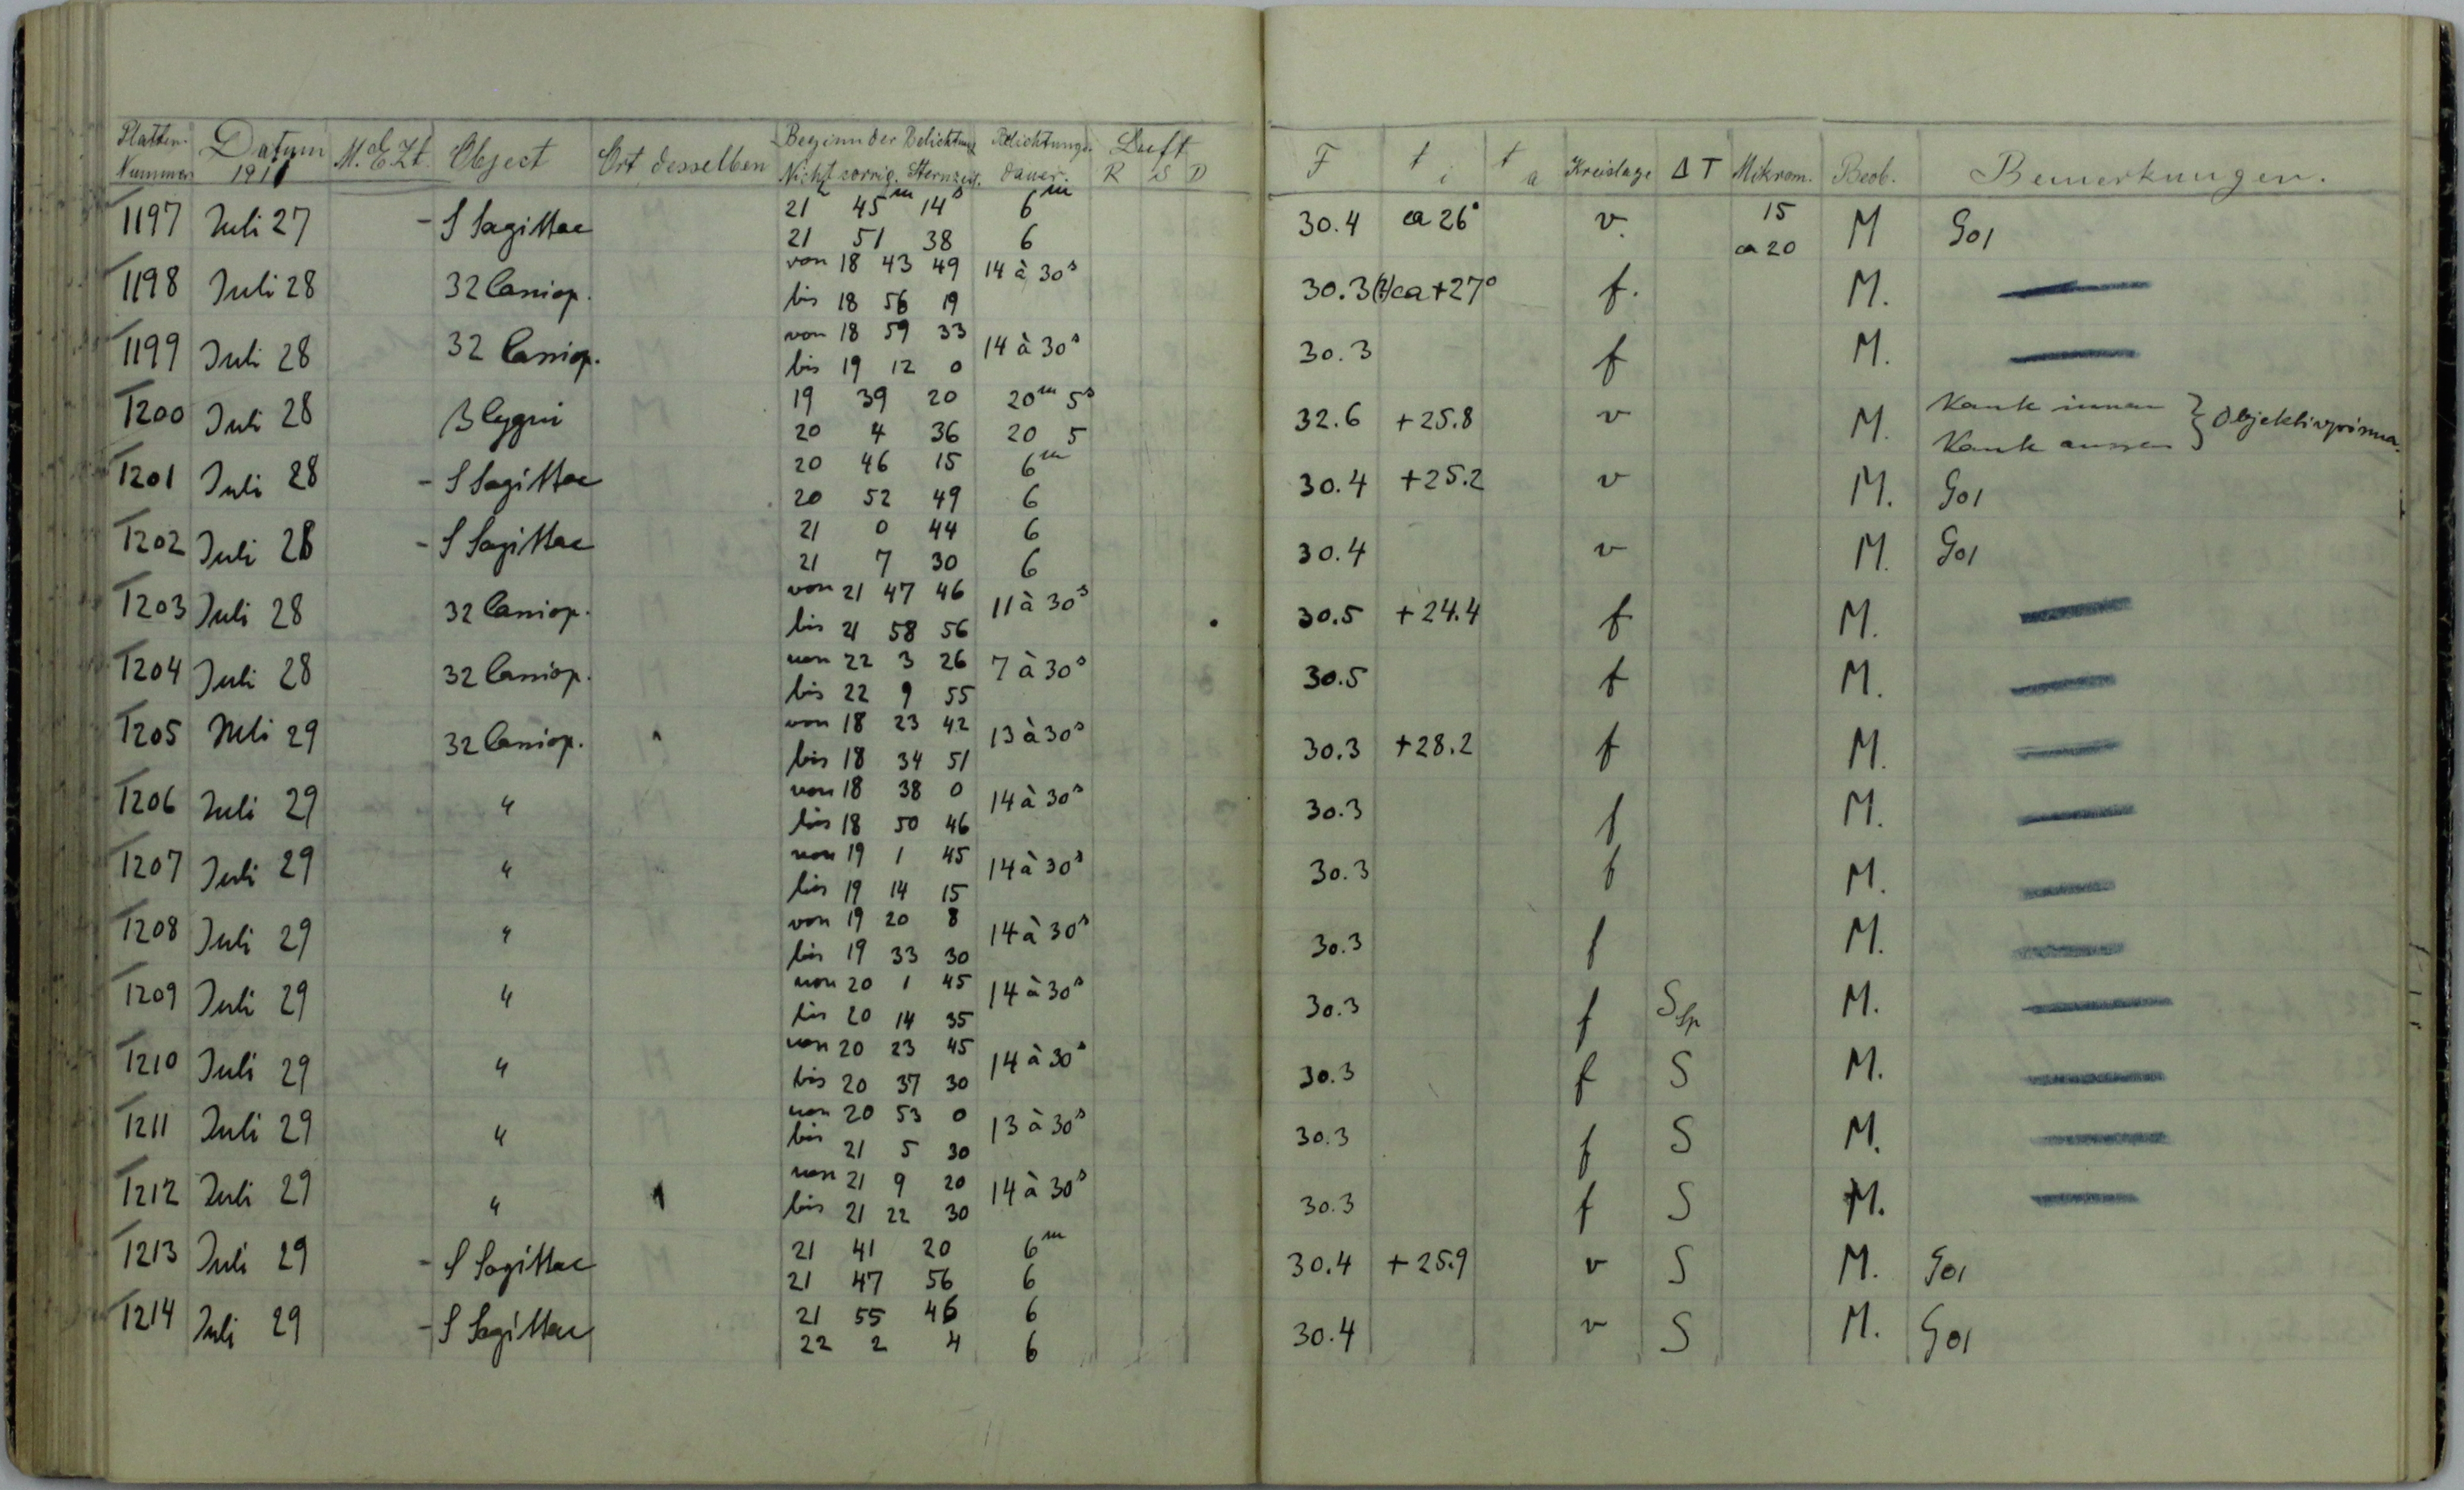 Platten- Nummer Datum 1911 M.E.Zt. Object Ort desselben Beginn der Belichtung Nicht corrig. Sternzeit. Belichtungs- dauer. Luft R S D F t i t a Kreislage Δ T Mikrom. Beob. Bemerkungen.
1197 Juli 27 - S Sagittae 21h 45m 14s 6m 30.4 ca 26° v. 15 M Go1
21 51 38 6 ca 20
1198 Juli 28 32 Cassiop. von 18 43 49 14 à 30s 30.3(?) ca +27° f. M.
bis 18 56 19
1199 Juli 28 32 Cassiop. von 18 59 33 14 à 30s 30.3 f M.
bis 19 12 0
1200 Juli 28 β Cygni 19 39 20 20m 5s 32.6 +25.8 v M. Kante innen } Objektivprisma.
20 4 36 20 5 Kante aussen
1201 Juli 28 - S Sagittae 20 46 15 6m 30.4 +25.2 v M. Go1
20 52 49 6
1202 Juli 28 - S Sagittae 21 0 44 6 30.4 v M. Go1
21 7 30 6
1203 Juli 28 32 Cassiop. von 21 47 46 11 à 30s 30.5 +24.4 f M.
bis 21 58 56
1204 Juli 28 32 Cassiop. von 22 3 26 7 à 30s 30.5 f M.
bis 22 9 55
1205 Juli 29 32 Cassiop. von 18 23 42 13 à 30s 30.3 +28.2 f M.
bis 18 34 51
1206 Juli 29 " von 18 38 0 14 à 30s 30.3 f M.
bis 18 50 46
1207 Juli 29 " von 19 1 45 14 à 30s 30.3 f M.
bis 19 14 15
1208 Juli 29 " von 19 20 8 14 à 30s 30.3 f M.
bis 19 33 30
1209 Juli 29 " von 20 1 45 14 à 30s 30.3 f S Sp M.
bis 20 14 35
1210 Juli 29 " von 20 23 45 14 à 30s 30.3 f S M.
bis 20 37 30
1211 Juli 29 " von 20 53 0 13 à 30s 30.3 f S M.
bis 21 5 30
1212 Juli 29 " von 21 9 20 14 à 30s 30.3 f S M.
bis 21 22 30
1213 Juli 29 - S Sagittae 21 41 20 6m 30.4 +25.9 v S M. Go1
21 47 56 6
1214 Juli 29 - S Sagittae 21 55 46 6 30.4 v S M. Go1
22 2 4 6